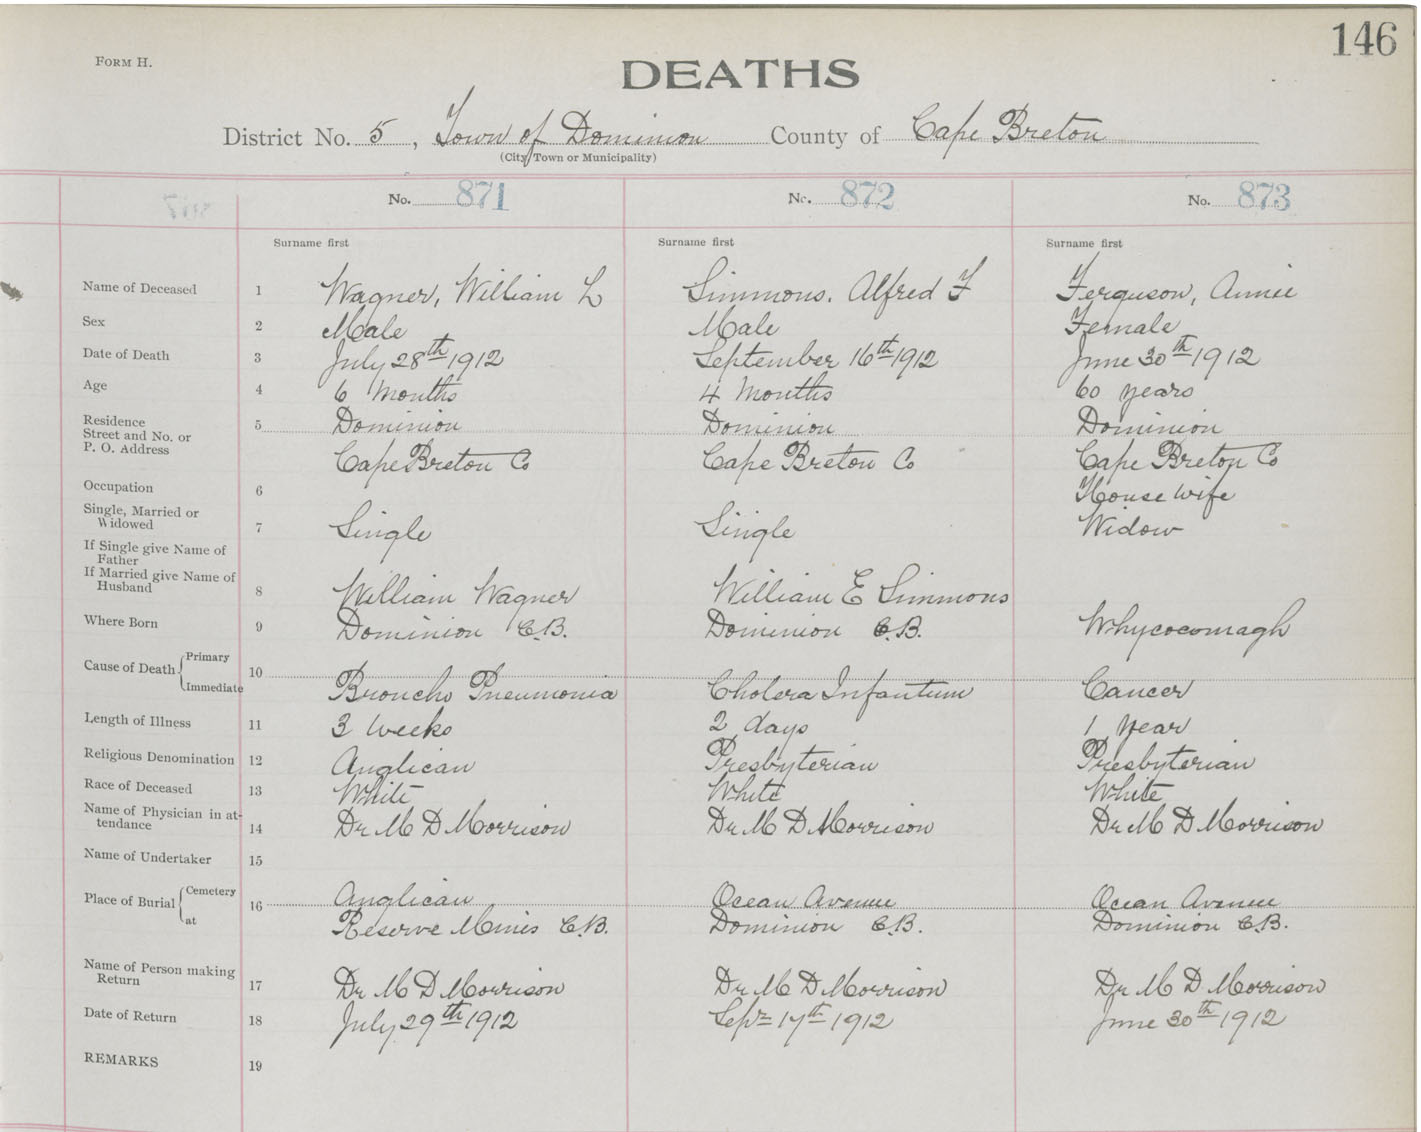 146
FORM H.
DEATHS
District No. 5, Town of Dominion County of Cape Breton
(City, Town or Municipality)
No. 871 No. 872 No. 873
Surname first Surname first Surname first
Name of Deceased 1 Wagner, William L Simmons, Alfred F Ferguson, Annie
Sex 2 Male Male Female
Date of Death 3 July 28th 1912 September 16th 1912 June 30th 1912
Age 4 6 Months 4 Months 60 years
Residence 5 Dominion Dominion Dominion
Street and No. or
P. O. Address Cape Breton Co Cape Breton Co Cape Breton Co
Occupation 6 House wife
Single, Married or
Widowed 7 Single Single Widow
If Single give Name of
Father
If Married give Name of
Husband 8 William Wagner William E Simmons
Where Born 9 Dominion C.B. Dominion C.B. Whycocomagh
Cause of Death Primary 10
Immediate Broncho Pneumonia Cholera Infantum Cancer
Length of Illness 11 3 weeks 2 days 1 year
Religious Denomination 12 Anglican Presbyterian Presbyterian
Race of Deceased 13 White White White
Name of Physician in at-
tendance 14 Dr M D Morrison Dr M D Morrison Dr M D Morrison
Name of Undertaker 15
Place of Burial Cemetery 16 Anglican Ocean Avenue Ocean Avenue
at Reserve Mines C.B. Dominion C.B. Dominion C.B.
Name of Person making
Return 17 Dr M D Morrison Dr M D Morrison Dr M D Morrison
Date of Return 18 July 29th 1912 Sepr 17th 1912 June 30th 1912
REMARKS 19